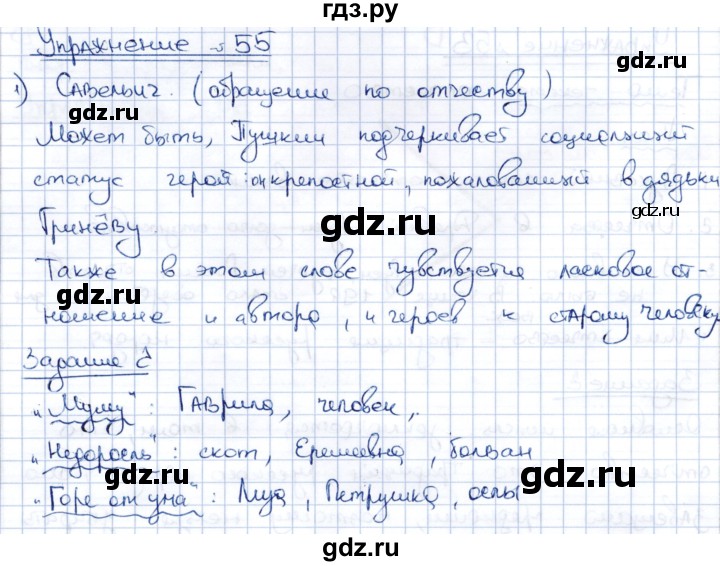 гдз.ру
Упражнение №55
gdz.ru gdz.ru
1) Савельич. (обращение по отчеству)
Может быть, Пушкин подчеркивает социальный
gdz.ru
статус герой: он крепостной, пожалованный в дядьки
Гринёву
gdz.ru
Также в этом слове чувствуется ласковое от-
gdz.ru gdz.ru
ношение и автора, и героев к старому человеку
Задание 2
gdz.ru
"Муму": Гаврила, человек,.
"Недоросль": скот, Еремеевна, болван
gdz.ru gdz.ru
"Горе от ума": Лиза, Петрушка, ослы
gdz.ru